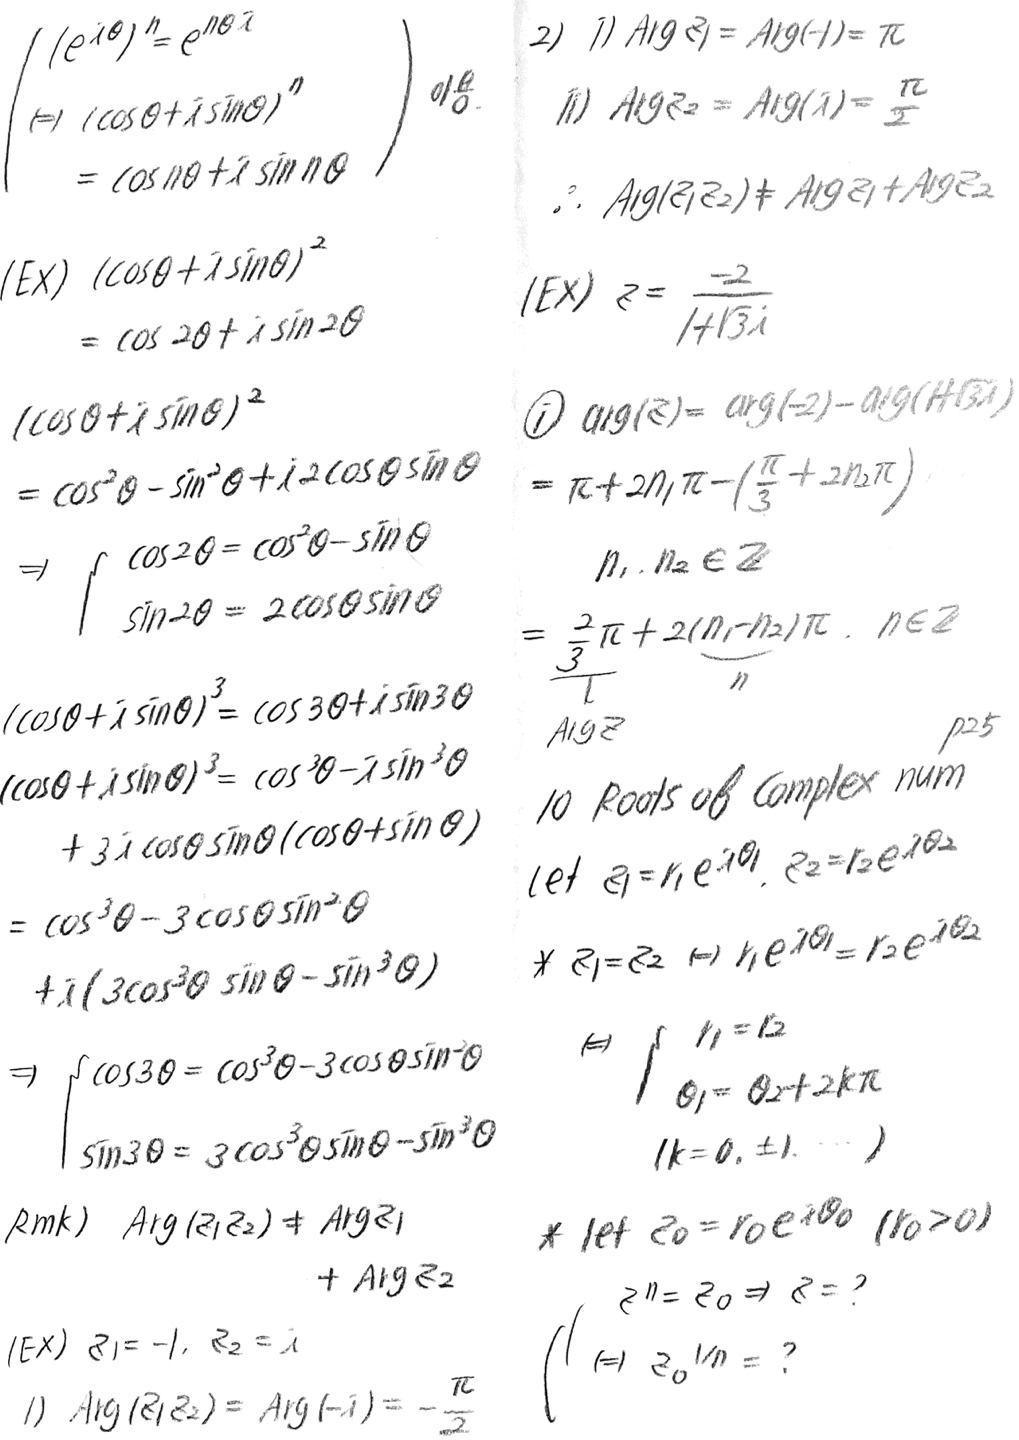 (e^{iθ})^n = e^{nθi}
⇔ (cosθ + i sinθ)^n 이용.
= cos nθ + i sin nθ
(EX) (cosθ + i sinθ)^2
= cos 2θ + i sin 2θ
(cosθ + i sinθ)^2
= cos^2θ - sin^2θ + i 2cosθ sinθ
⇒ { cos2θ = cos^2θ - sinθ
sin2θ = 2cosθ sinθ
(cosθ + i sinθ)^3 = cos3θ + i sin3θ
(cosθ + i sinθ)^3 = cos^3θ - i sin^3θ
+ 3i cosθ sinθ (cosθ + sinθ)
= cos^3θ - 3cosθ sin^2θ
+ i(3cos^3θ sinθ - sin^3θ)
⇒ { cos3θ = cos^3θ - 3cosθ sin^2θ
sin3θ = 3cos^3θ sinθ - sin^3θ
Rmk) Arg(z_1z_2) ≠ Argz_1
+ Argz_2
(EX) z_1 = -1, z_2 = i
1) Arg(z_1z_2) = Arg(-i) = -π/2
2) i) Arg z_1 = Arg(-1) = π
ii) Arg z_2 = Arg(i) = π/2
∴ Arg(z_1z_2) ≠ Argz_1 + Argz_2
(EX) z = -2/(1+√3i)
① arg(z) = arg(-2) - arg(1+√3i)
= π + 2n_1π - (π/3 + 2n_2π)
n_1, n_2 ∈ ℤ
= 2/3 π + 2(n_1-n_2)π. n∈ℤ
n
Arg z
p25
10 Roots of Complex num
Let z_1 = r_1e^{iθ_1}, z_2 = r_2e^{iθ_2}
* z_1 = z_2 ⇔ r_1e^{iθ_1} = r_2e^{iθ_2}
⇔ { r_1 = r_2
θ_1 = θ_2 + 2kπ
(k = 0, ±1, ⋯)
* let z_0 = r_0e^{iθ_0} (r_0 > 0)
z^n = z_0 ⇒ z = ?
⇔ z_0^{1/n} = ?